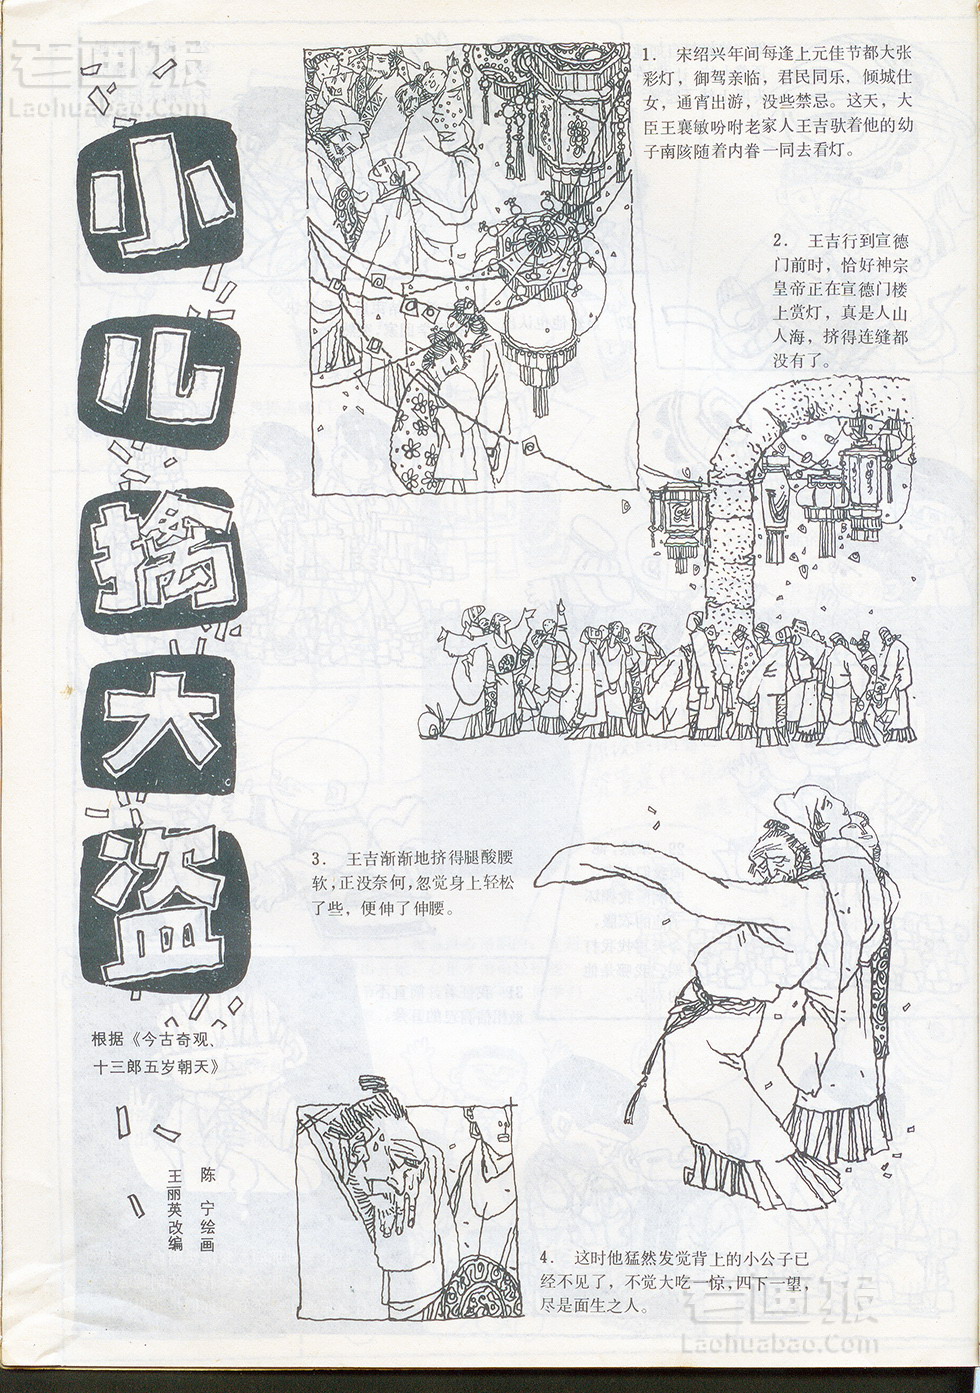 老画报
Laohuabao.com
小儿擒大盗
根据《今古奇观、
十三郎五岁朝天》
陈 宁绘画
王丽英改编
1. 宋绍兴年间每逢上元佳节都大张
彩灯，御驾亲临，君民同乐，倾城仕
女，通宵出游，没些禁忌。这天，大
臣王襄敏吩咐老家人王吉驮着他的幼
子南陔随着内眷一同去看灯。
2. 王吉行到宣德
门前时，恰好神宗
皇帝正在宣德门楼
上赏灯，真是人山
人海，挤得连缝都
没有了。
3. 王吉渐渐地挤得腿酸腰
软，正没奈何，忽觉身上轻松
了些，便伸了伸腰。
4. 这时他猛然发觉背上的小公子已
经不见了，不觉大吃一惊，四下一望，
尽是面生之人。
老画报
Laohuabao.com